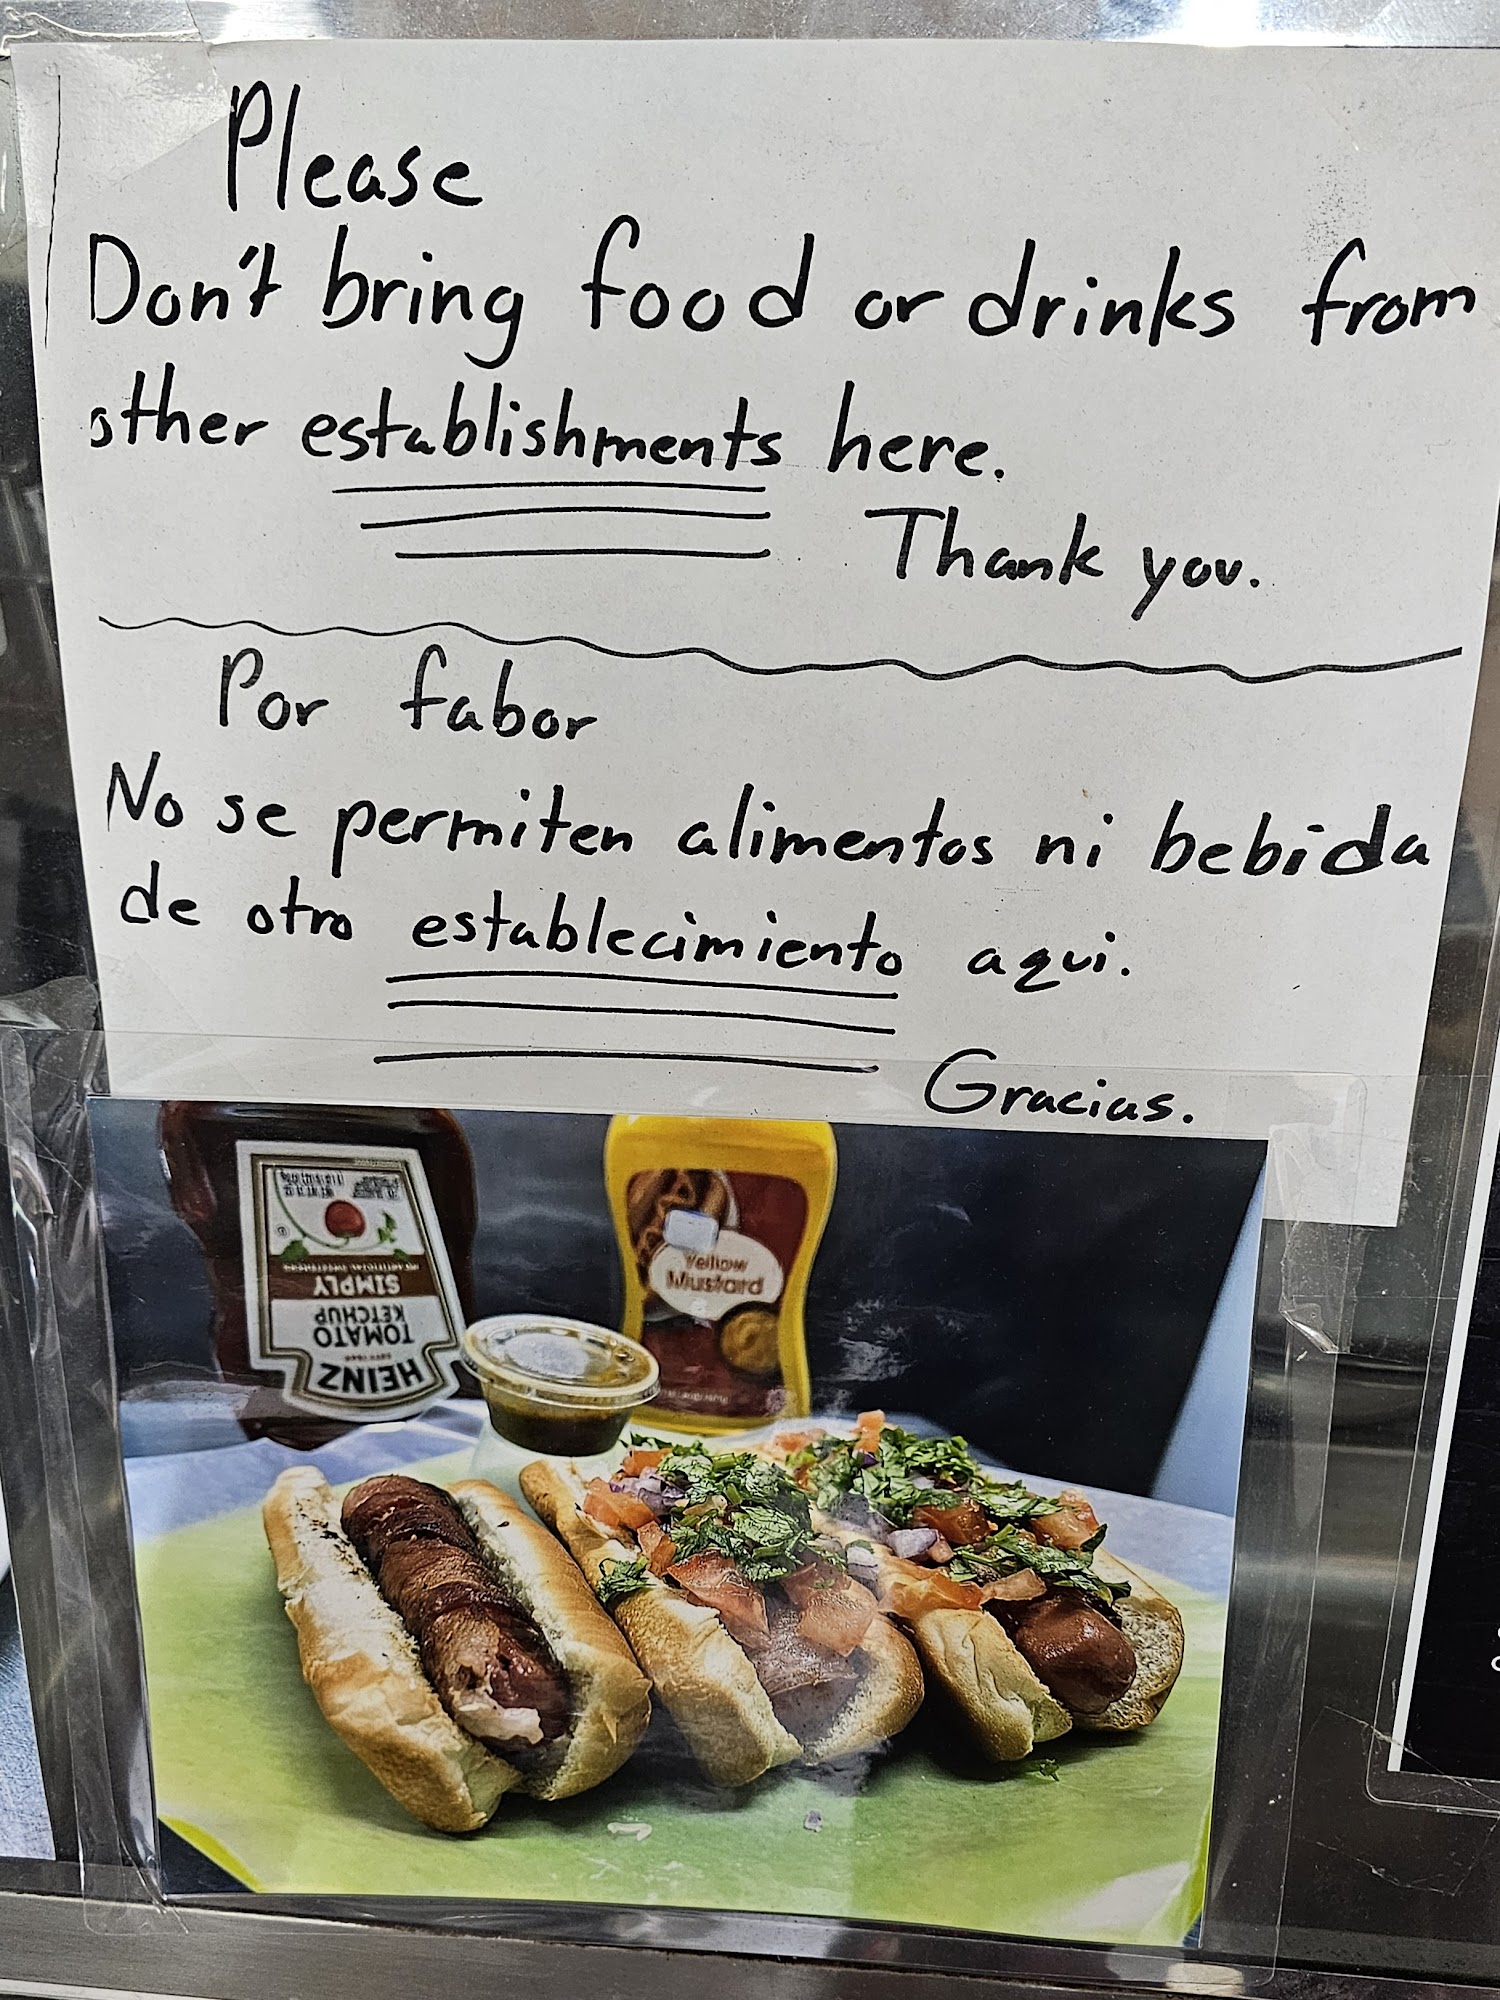 Please
Don't bring food or drinks from
other establishments here.
Thank you.
Por fabor
No se permiten alimentos ni bebida
de otro establecimiento aqui.
Gracias.
HEINZ
TOMATO
KETCHUP
SIMPLY
Yellow
Mustard